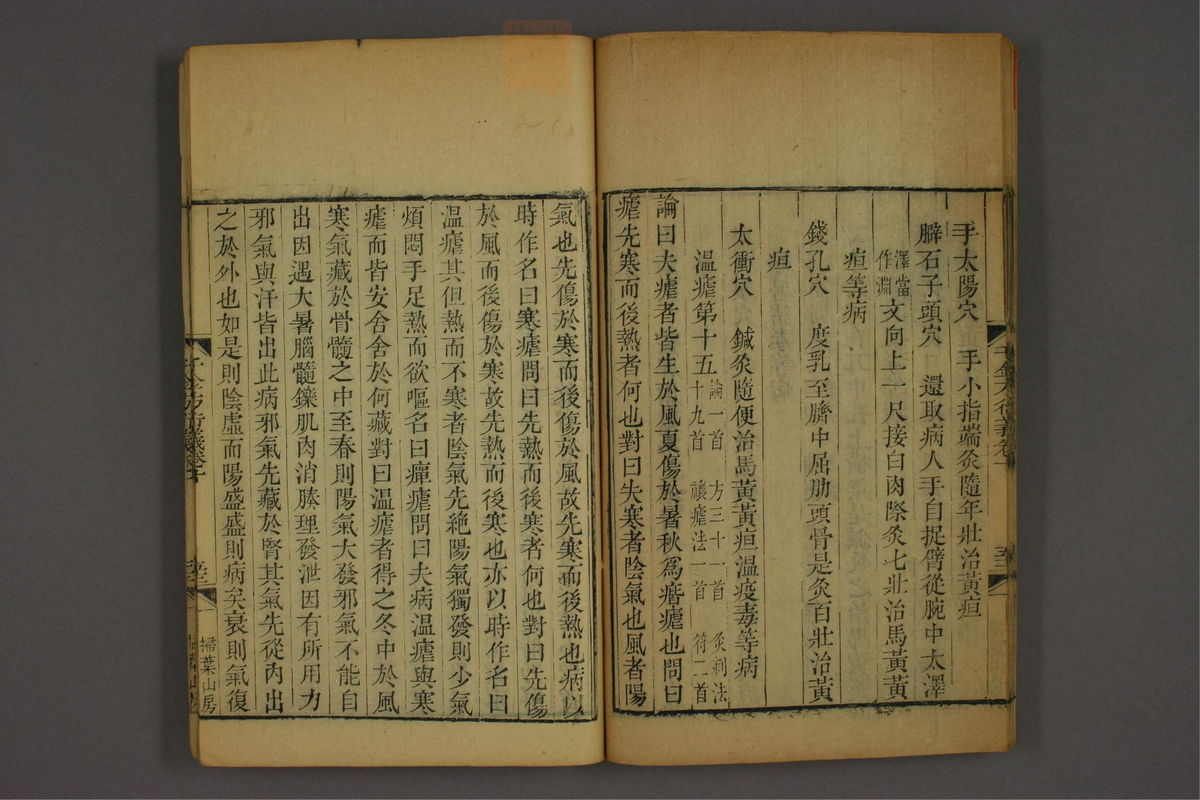 手太陽穴　手小指端灸隨年壯治黃疸
臂石子頭穴　還取病人手自捉臂從腕中太澤
澤當作淵文向上一尺接白肉際灸七壯治馬黃黃
疸等病
錢孔穴　度乳至臍中屈肋頭骨是灸百壯治黃
疸
太衝穴　鍼灸隨便治馬黃黃疸溫疫毒等病
溫瘧第十五論一首　方三十一首　灸刺法十九首　禳瘧法一首　符二首
論曰夫瘧者皆生於風夏傷於暑秋爲痎瘧也問曰
瘧先寒而後熱者何也對曰夫寒者陰氣也風者陽
千金方衍義卷十
氣也先傷於寒而後傷於風故先寒而後熱也病以
時作名曰寒瘧問曰先熱而後寒者何也對曰先傷
於風而後傷於寒故先熱而後寒也亦以時作名曰
溫瘧其但熱而不寒者陰氣先絶陽氣獨發則少氣
煩悶手足熱而欲嘔名曰癉瘧問曰夫病溫瘧與寒
瘧而皆安舍舍於何藏對曰溫瘧者得之冬中於風
寒氣藏於骨髓之中至春則陽氣大發邪氣不能自
出因遇大暑腦髓鑠肌肉消腠理發泄因有所用力
邪氣與汗皆出此病邪氣先藏於腎其氣先從內出
之於外也如是則陰虛而陽盛盛則病矣衰則氣復
千金方衍義卷十
掃葉山房